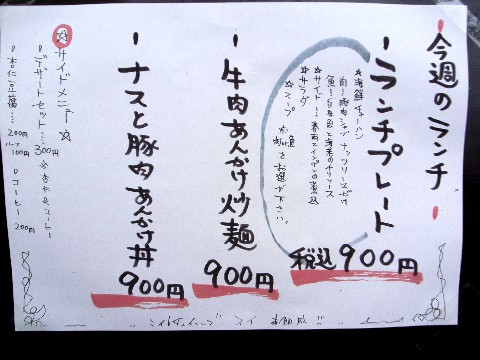 今週のランチ
ランチプレート
☆海鮮チャーハン
肉…豚肉シャブ ナッツソースがけ
魚…白身魚と海老のチリソース
☆サイド…春雨とインゲンの煮込
☆サラダ
☆スープ
※魚、肉をお選び下さい。
税込900円
牛肉あんかけ炒麺
900円
ナスと豚肉あんかけ丼
900円
☆サイドメニュー☆
デザートセット…300円
杏仁豆腐…200円
100円
コーヒー
200円